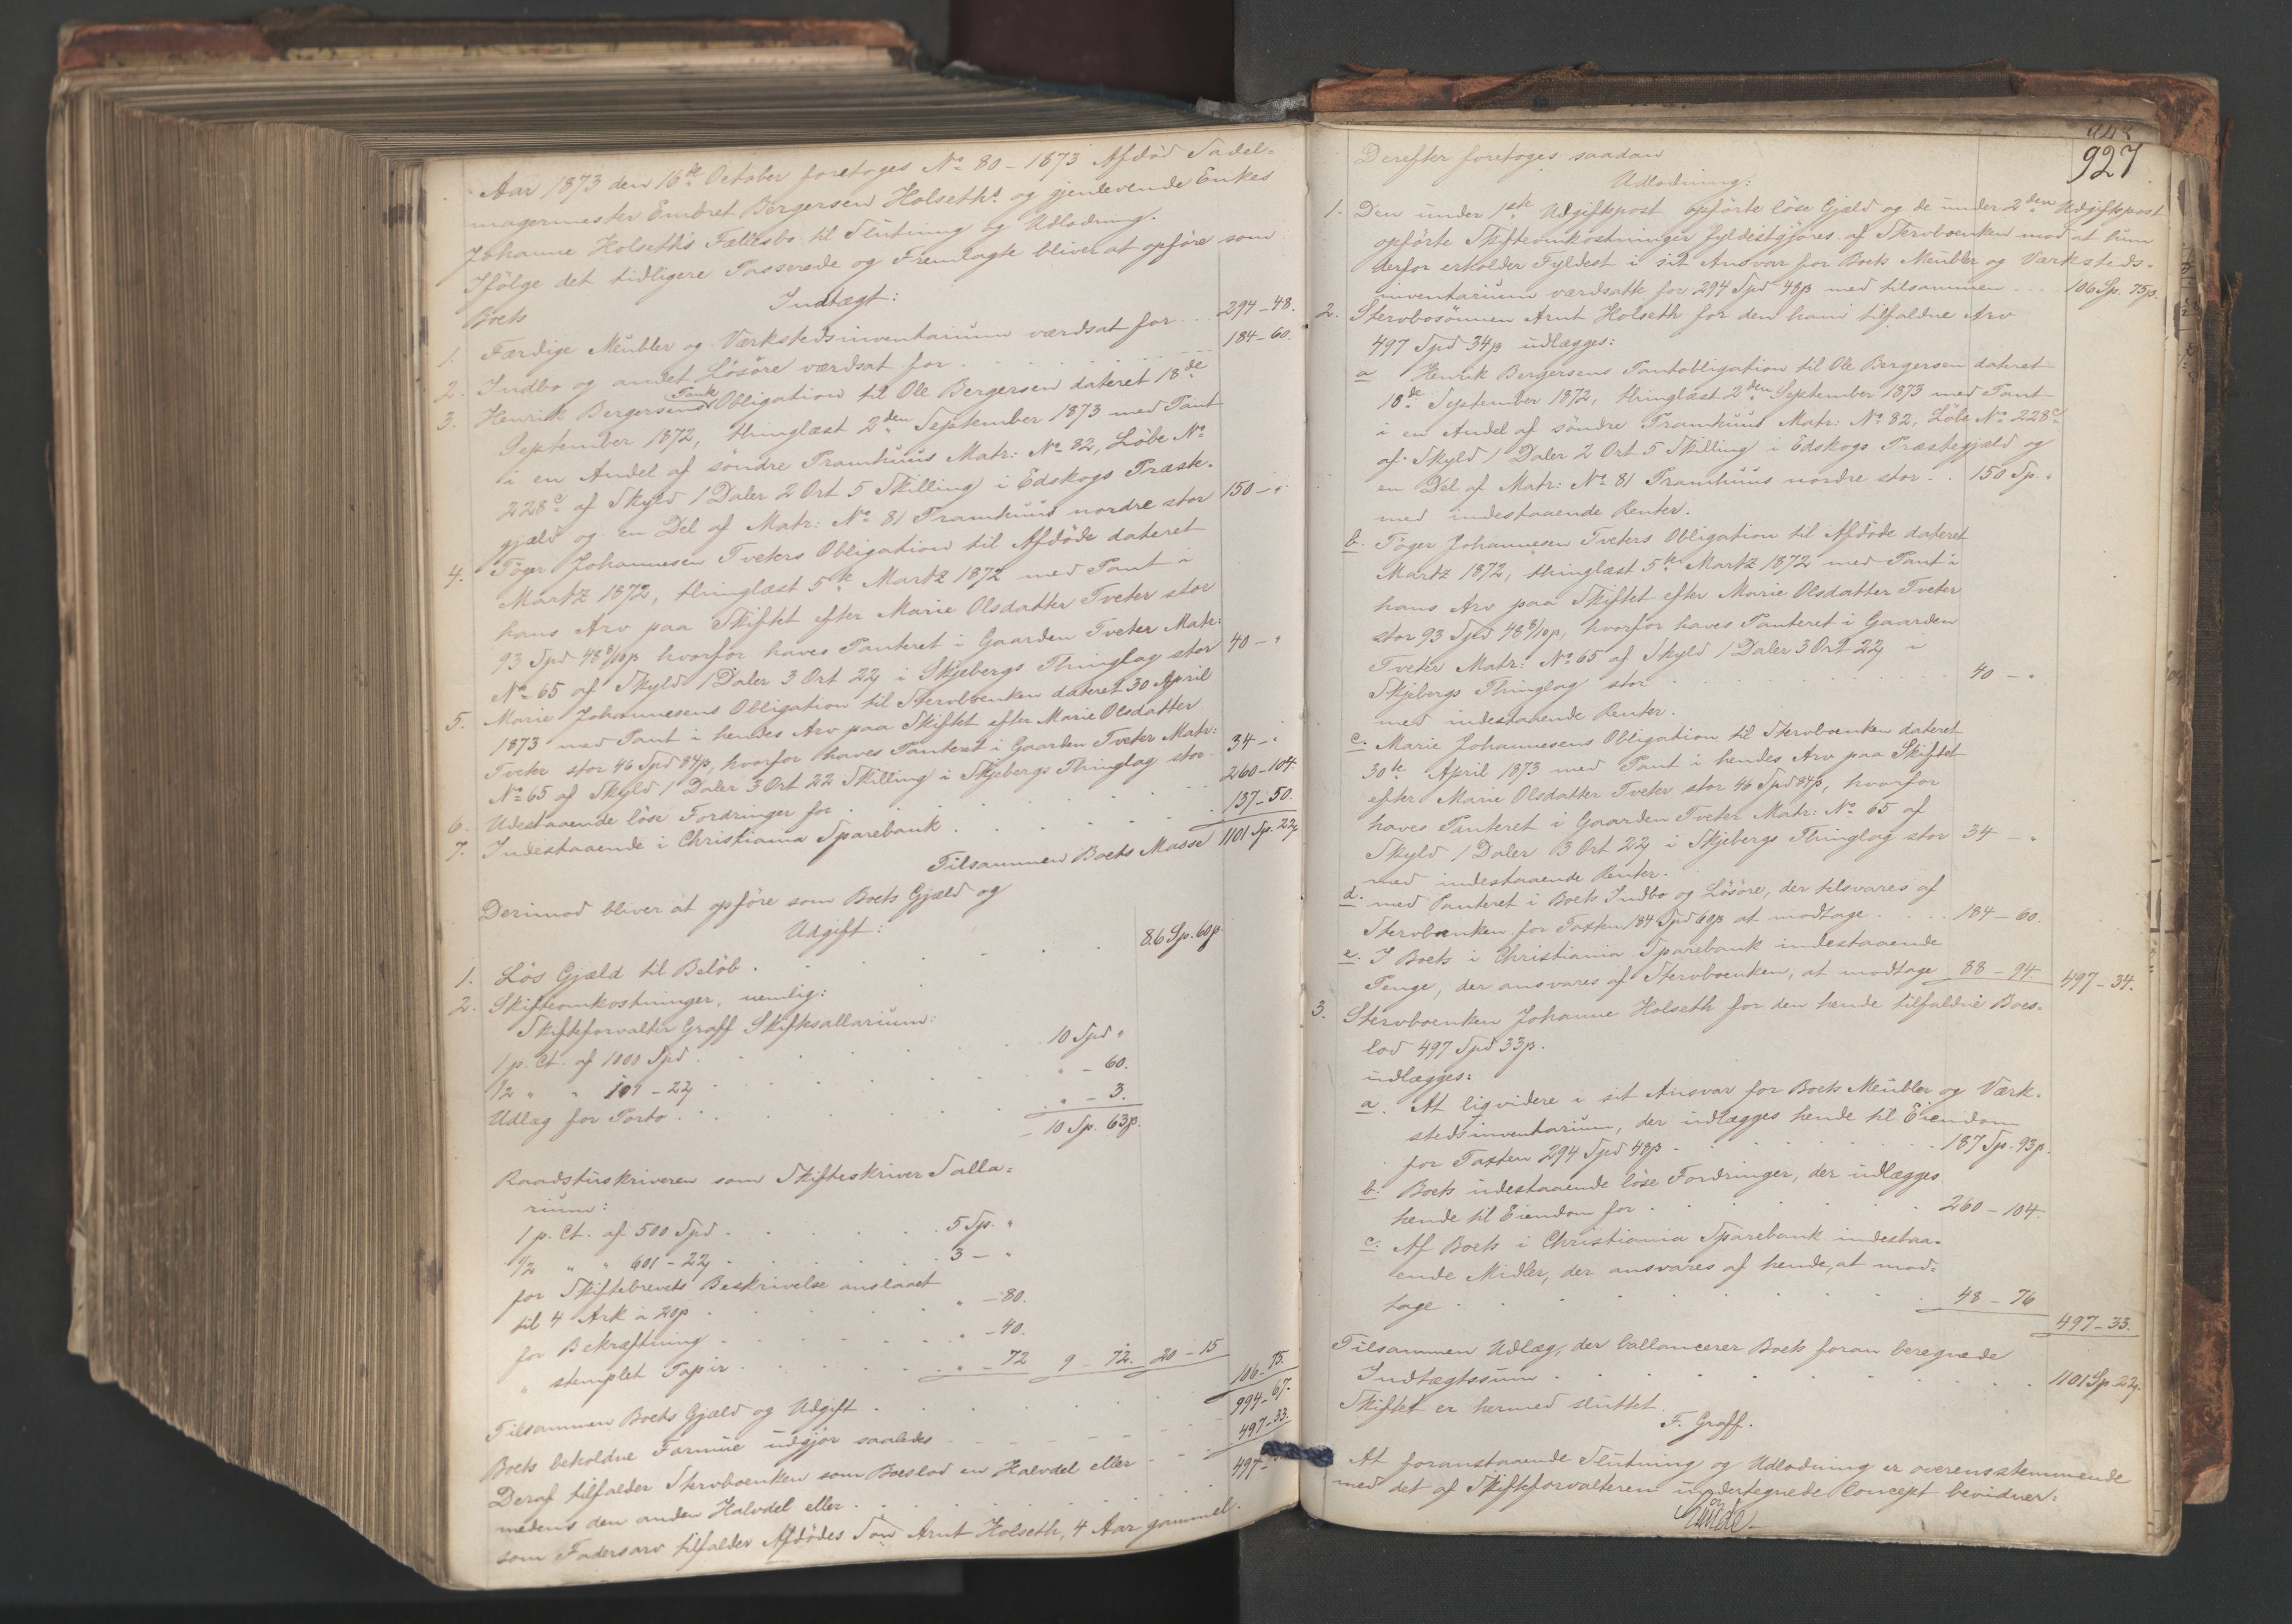 Aar 1873 den 16de October foretoges No 80 - 1873 Afdød Sadel=
magermester Embret Bergersen Holseths og gjenlevende Enkes
Johanne Holseths Fællesbo til Slutning og Udlodning.
Ifølge det tidligere Passerede og Fremlagte bliver at opføre som
Boets
Indtægt:
1. Færdige Meubler og Værkstedsinventarium værdsat for . . . 294 - 48.
2. Indbo og andet Løsøre værdsat for . . . 184 - 60.
3. Henrik Bergersens Pant Obligation til Ole Bergersen dateret 18de
September 1872, thinglæst 2den September 1873 med Pant
i en Andel af søndre Framhuus Matr: No 82, Løbe No
228c af Skyld 1 Daler 2 Ort 5 Skilling i Edskogs Præste-
gjæld og en Del af Matr: No 81 Framhuus nordre stor 150 - "
4. Tøger Johannesen Tveters Obligation til Afdøde dateret
Martz 1872, thinglæst 5te Martz 1872 med Pant i
hans Arv paa Skiftet efter Marie Olsdatter Tveter stor
93 Spd 48 8/10 β hvorfor haves Panteret i Gaarden Tveter Matr:
No 65 af Skyld 1 Daler 3 Ort 22β i Skjebergs Thinglag stor 40 - "
5. Marie Johannesens Obligation til Stervboenken dateret 30 April
1873 med Pant i hendes Arv paa Skiftet efter Marie Olsdatter
Tveter stor 46 Spd 84β, hvorfor haves Panteret i Gaarden Tveter Matr:
No 65 af Skyld 1 Daler 3 Ort 22 Skilling i Skjebergs Thinglag stor 34 - "
6. Udestaaende løse Fordringer for . . . 260 - 104.
7. Indestaaende i Christiania Sparebank . . . 137 - 50.
Tilsammen Boets Masse 1101 Sp. 22β
Derimod bliver at opføre som Boets Gjæld og
Udgift:
1. Løs Gjæld til Beløb . . . 86 Sp. 60β.
2. Skifteomkostninger, nemlig:
Skifteforvalter Graff Skiftesallarium:
1 p. Ct. af 1000 Spd . . . 10 Spd "
1/2 " " 101 - 22β . . . " - 60.
Udlæg for Porto . . . " - 3.
10 Sp. 63β.
Raadstuskriveren som Skifteskriver Salla=
rium:
1 p. Ct. af 500 Spd . . . 5 Sp. "
1/2 " " 601 - 22β . . . 3 - "
for Skiftebrevets Beskrivelse anslaaet
til 4 Ark a 20β . . . " - 80.
for Bekræftning . . . " - 40.
" stemplet Papir . . . " - 72 9 - 72. 20 - 15
Tilsammen Boets Gjæld og Udgift . . . 106 - 75.
Boets beholdne Formue udgjør saaledes . . . 994 - 67.
Deraf tilfalder Stervboenken som Boeslod en Halvdel eller . . . 497 - 33.
medens den anden Halvdel eller . . . 497 -
som Fadersarv tilfalder Afdødes Søn Arnt Holseth, 4 Aar gammel.
927
Derefter foretoges saadan
Udlodning:
1. Den under 1ste Udgiftspost opførte løse Gjæld og de under 2den Udgiftspost
opførte Skifteomkostninger fyldestgjøres af Stervboenken mod at hun
derfor erholder Fyldest i sit Ansvar for Boets Meubler og Værksteds-
inventarium værdsatte for 294 Spd 48β med tilsammen . . . 106 Sp. 75β.
2. Stervbosønnen Arnt Holseth for den ham tilfaldne Arv
497 Spd 34β udlægges:
a Henrik Bergersens Pantobligation til Ole Bergersen dateret
18de September 1872, thinglæst 2den September 1873 med Pant
i en Andel af søndre Framhuus Matr: No 82, Løbe No 228c
af Skyld 1 Daler 2 Ort 5 Skilling i Edskogs Præstegjæld og
en Del af Matr: No 81 Framhuus nordre stor . . 150 Sp. "
med indestaaende Renter.
b. Tøger Johannesen Tveters Obligation til Afdøde dateret
Martz 1872, thinglæst 5te Martz 1872 med Pant i
hans Arv paa Skiftet efter Marie Olsdatter Tveter
stor 93 Spd 48 8/10 β, hvorfor haves Panteret i Gaarden
Tveter Matr: No 65 af Skyld 1 Daler 3 Ort 22β i
Skjebergs Thinglag stor . . . 40 - "
med indestaaende Renter.
c. Marie Johannesens Obligation til Stervboenken dateret
30te April 1873 med Pant i hendes Arv paa Skiftet
efter Marie Olsdatter Tveter stor 46 Spd 84β, hvorfor
haves Panteret i Gaarden Tveter Matr: No 65 af
Skyld 1 Daler 3 Ort 22β i Skjebergs Thinglag stor 34 - "
med indestaaende Renter.
d. med Panteret i Boets Indbo og Løsøre, der tilsvares af
Stervboenken for Taxten 184 Spd 60β at modtage . . . 184 - 60.
e. I Boets i Christiania Sparebank indestaaende
Penge, der ansvares af Stervboenken, at modtage 88 - 94. 497 - 34.
3. Stervboenken Johanne Holseth for den hende tilfaldne Boes-
lod 497 Spd 33β.
udlægges:
a. At liqvidere i sit Ansvar for Boets Meubler og Værk-
stedsinventarium, der udlægges hende til Eiendom
for Taxten 294 Spd 48β . . . 187 Sp. 93β.
b. Boets udestaaende løse Fordringer, der udlægges
hende til Eiendom for . . . 260 - 104.
c. Af Boets i Christiania Sparebank indestaa-
ende Midler, der ansvares af hende, at mod=
tage . . . 48 - 76
497 - 33.
Tilsammen Udlæg, der ballancerer Boets foran beregnede
Indtægtssum . . . 1101 Sp 22β.
Skiftet er hermed sluttet.
F. Graff.
At foranstaaende Slutning og Udlodning er overensstemmende
med det af Skifteforvalteren undertegnede Concept bevidner: